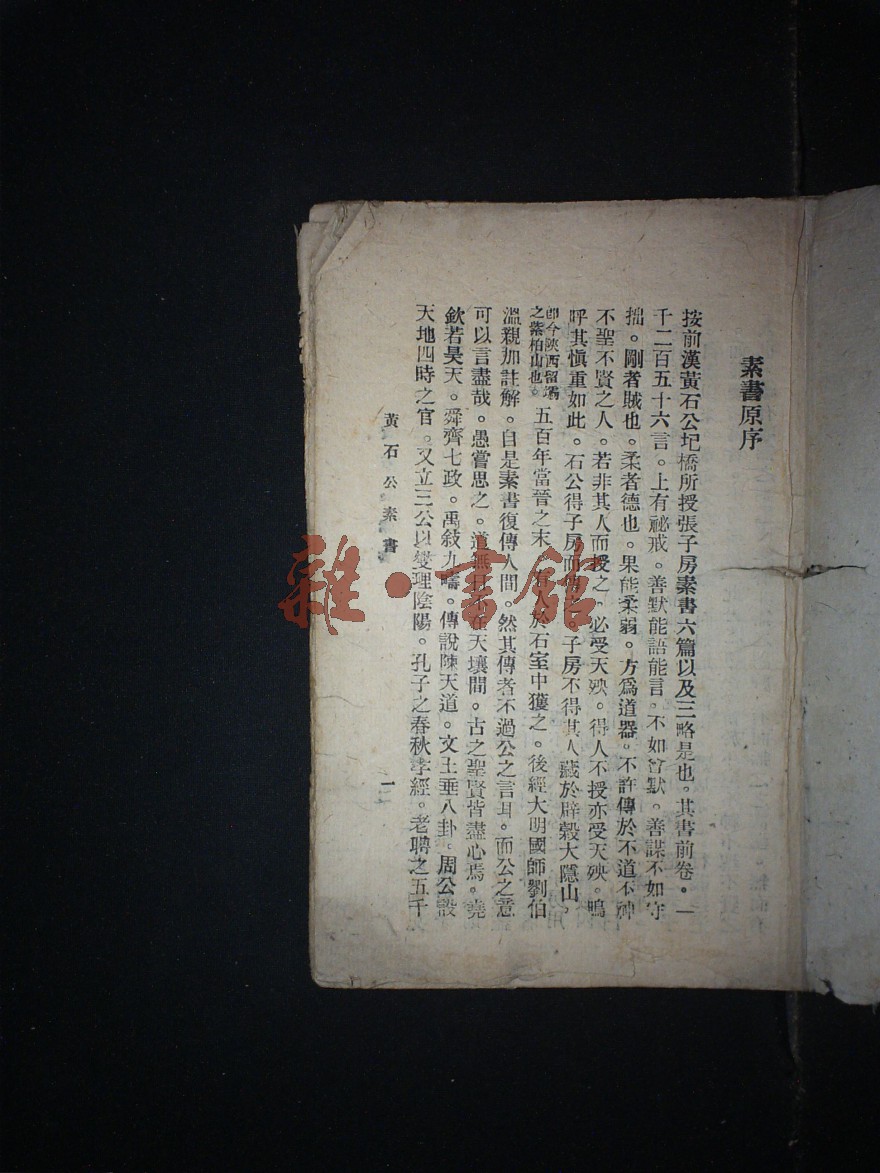 素書原序
按前漢黃石公圯橋所授張子房素書六篇以及三略是也。其書前卷。一
千二百五十六言。上有祕戒。善默能語能言。不如會默。善謀不如守
拙。剛者賊也。柔者德也。果能柔弱。方爲道器。不許傳於不道不神
不聖不賢之人。若非其人而授之。必受天殃。得人不授亦受天殃。嗚
呼其愼重如此。石公得子房而傳。子房不得其人藏於辟穀大隱山。
卽今陝西留壩
之紫柏山也
五百年當晉之末。於石室中獲之。後經大明國師劉伯
溫親加註解。自是素書復傳人間。然其傳者不過公之言耳。而公之意
可以言盡哉。愚嘗思之。道無日不在天壤間。古之聖賢皆盡心焉。堯
欽若昊天。舜齊七政。禹敍九疇。傳說陳天道。文王垂八卦。周公設
天地四時之官。又立三公以燮理陰陽。孔子之春秋孝經。老聃之五千
黃石公素書
一
雜·書館